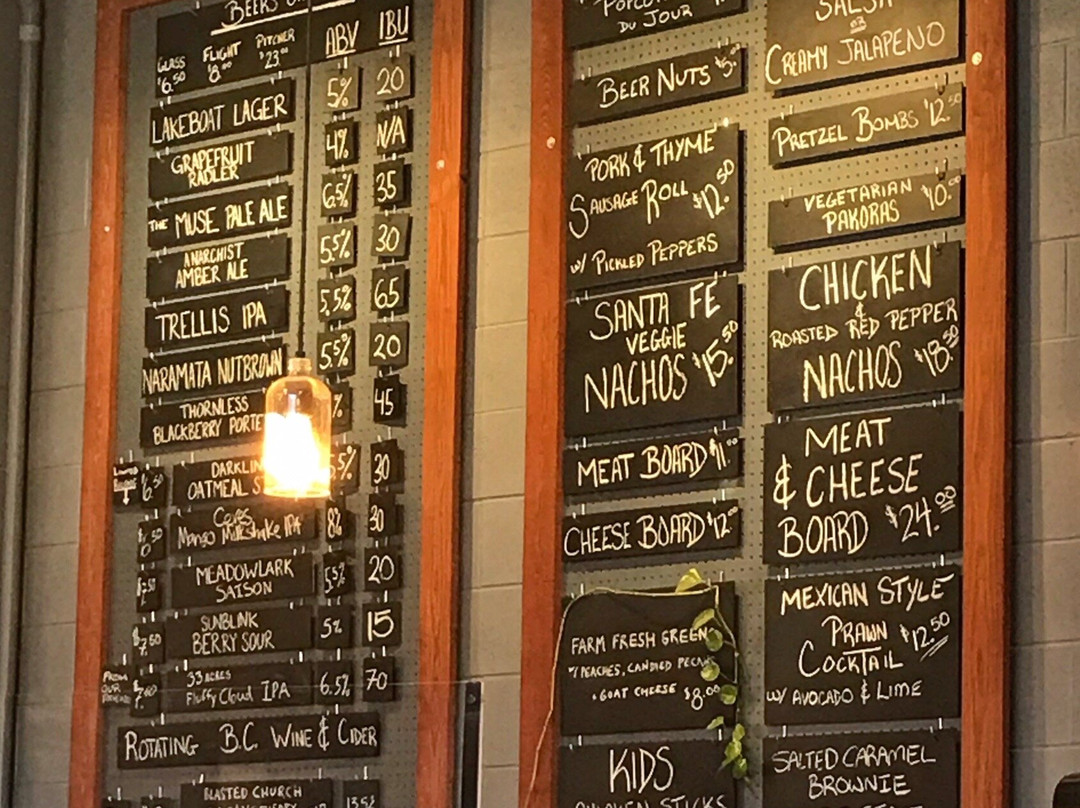 BEERS
GLASS FLIGHT PITCHER ABV IBU
$6.50 $8.00 $23.00
LAKEBOAT LAGER 5% 20
GRAPEFRUIT
RADLER 4% N/A
THE MUSE PALE ALE 6.5% 35
ANARCHIST
AMBER ALE 5.5% 30
TRELLIS IPA 5.5% 65
NARAMATA NUTBROWN 5.5% 20
THORNLESS
BLACKBERRY 45
OATMEAL 30
Mango Milkshake IPA 8% 30
MEADOWLARK
SAISON 5.5% 20
SUNBLINK
BERRY SOUR $7.50 5% 15
FROM
OUR
Fluffy Cloud IPA 6.5% 70
ROTATING B.C. WINE & CIDER
BLASTED CHURCH
13.5%
DU JOUR
BEER NUTS $5.00
PORK & THYME
SAUSAGE ROLL $12.50
W/ PICKLED PEPPERS
SANTA FE
VEGGIE
NACHOS $15.50
MEAT BOARD $11.00
CHEESE BOARD $12.00
FARM FRESH GREENS
W/ PEACHES, CANDIED
+ GOAT CHEESE $8.00
KIDS
CHICKEN STICKS
SALSA
OR
CREAMY JALAPENO
PRETZEL BOMBS $12.50
VEGETARIAN
PAKORAS $10.00
CHICKEN
&
ROASTED RED PEPPER
NACHOS $18.50
MEAT
& CHEESE
BOARD $24.00
MEXICAN STYLE
PRAWN
COCKTAIL $12.50
W/ AVOCADO & LIME
SALTED CARAMEL
BROWNIE